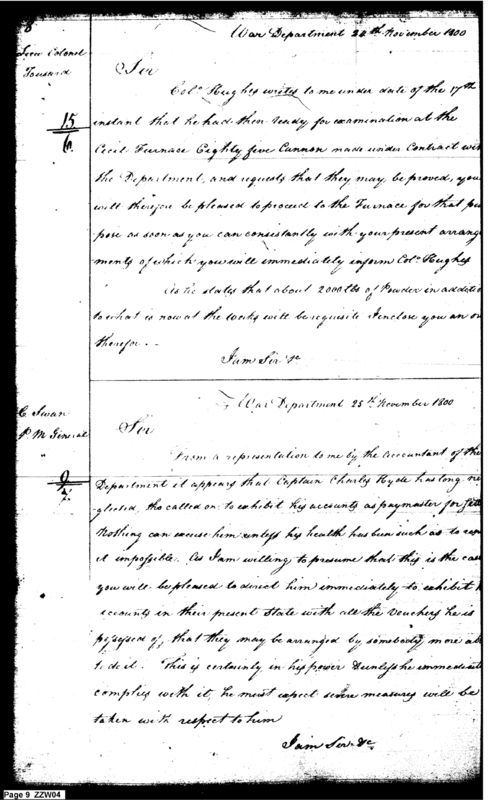 8
War Department 24th November 1800
Lieu Colonel
Tousard
Sir
Colo. Hughes writes to me under date of the 17th
15
6
instant that he had then ready for examination at the
Cecil Furnace Eighty five Cannon made under Contract with
the Department, and requests that they may be proved, you
will therefore be pleased to proceed to the Furnace for that pur
pose as soon as you can consistantly with your present arrange
ments of which you will immediately inform Colo. Hughes
As he states that about 2000 lbs of Powder in addition
to what is now at the Works will be requisite I enclose you an or
therefor. -
I am Sir &c
War Department 25th November 1800
C Swan
P. M. General
Sir
From a representation to me by the Accountant of the
Department it appears that Captain Charles Hyde has long ne
glected, tho called on to exhibit his accounts as paymaster for
Nothing can excuse him unless his health has been such as to
it impossible. As I am willing to presume that this is the case
you will be pleased to direct him immediately to exhibit
accounts in their present state with all the Vouchers he is
possessed of, that they may be arranged by somebody more
to do it. This is certainly in his power & unless he immediate
complies with it, he must expect severe measures will be
taken with respect to him
I am Sir &c
Page 9 ZZW04